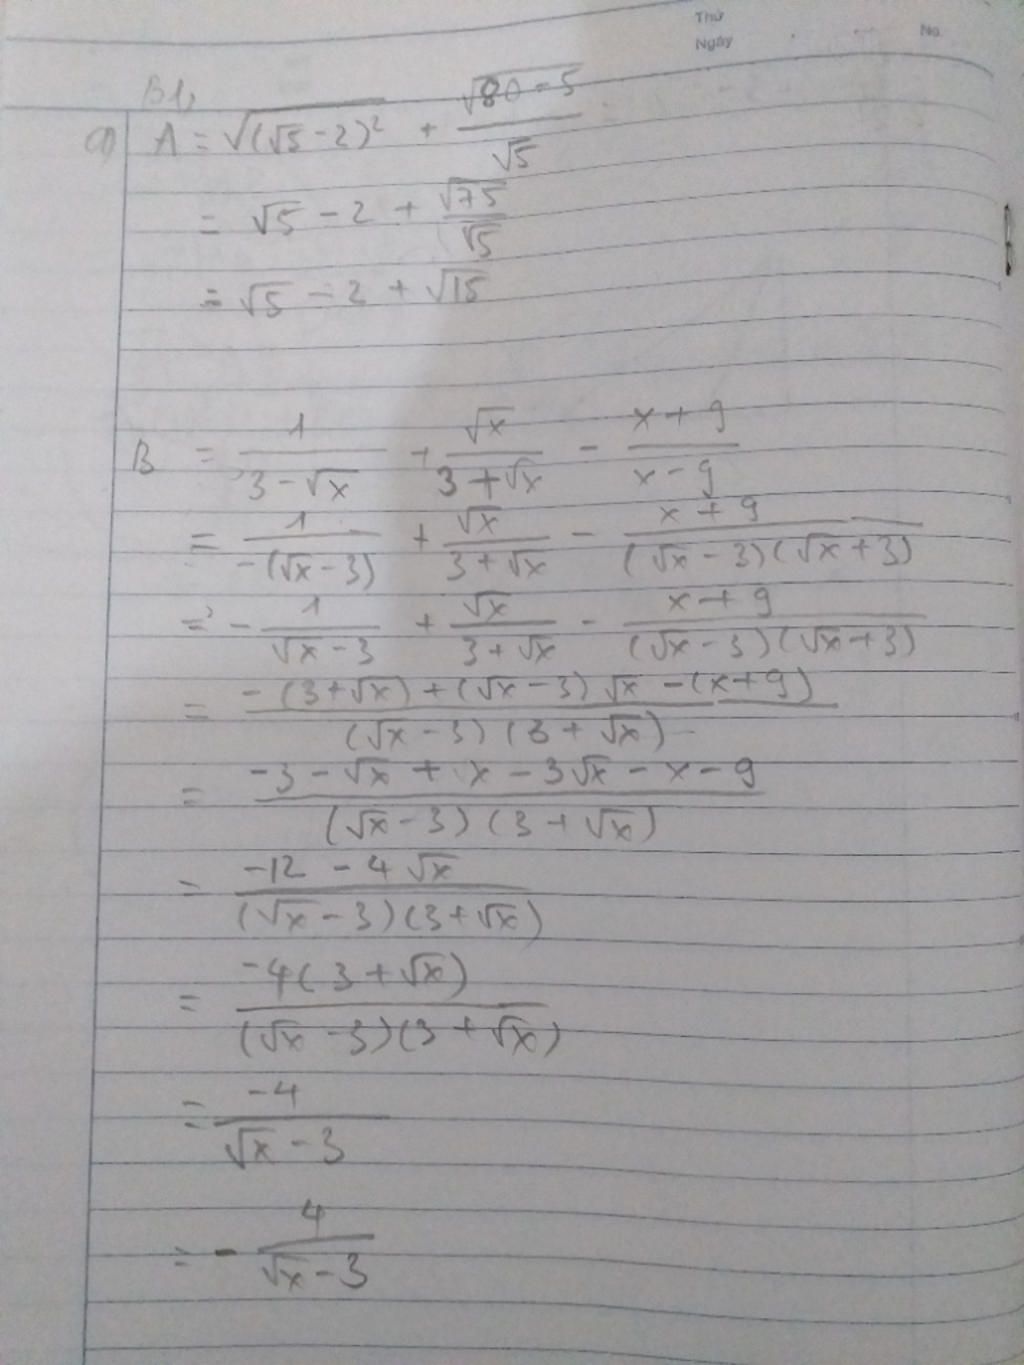 Thứ
Ngày
No
B1,
a) A = √(√5 - 2)² + √80 - 5 / √5
= √5 - 2 + √75 / √5
= √5 - 2 + √15
B = 1 / (3 - √x) + √x / (3 + √x) - (x + 9) / (x - 9)
= 1 / -(√x - 3) + √x / (3 + √x) - (x + 9) / (√x - 3)(√x + 3)
= - 1 / (√x - 3) + √x / (3 + √x) - (x + 9) / (√x - 3)(√x + 3)
= -(3 + √x) + (√x - 3)√x - (x + 9) / (√x - 3)(3 + √x)
= -3 - √x + x - 3√x - x - 9 / (√x - 3)(3 + √x)
= -12 - 4√x / (√x - 3)(3 + √x)
= -4(3 + √x) / (√x - 3)(3 + √x)
= -4 / (√x - 3)
= - 4 / (√x - 3)